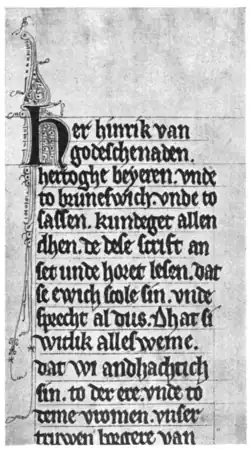 her hinrik van
godeschenaden.
hertoghe beyeren. vnde
to bruneswich vnde to
sassen. kundeget allen
dhen. de dese scrift an
set unde horet lesen. dat
se ewich scole sin. vnde
sprecht al dus. Dhat si
witlik allesweme.
dat wi andhachtich
sin. to der ere. vnde to
deme vromen. vnser
truwen borgere van